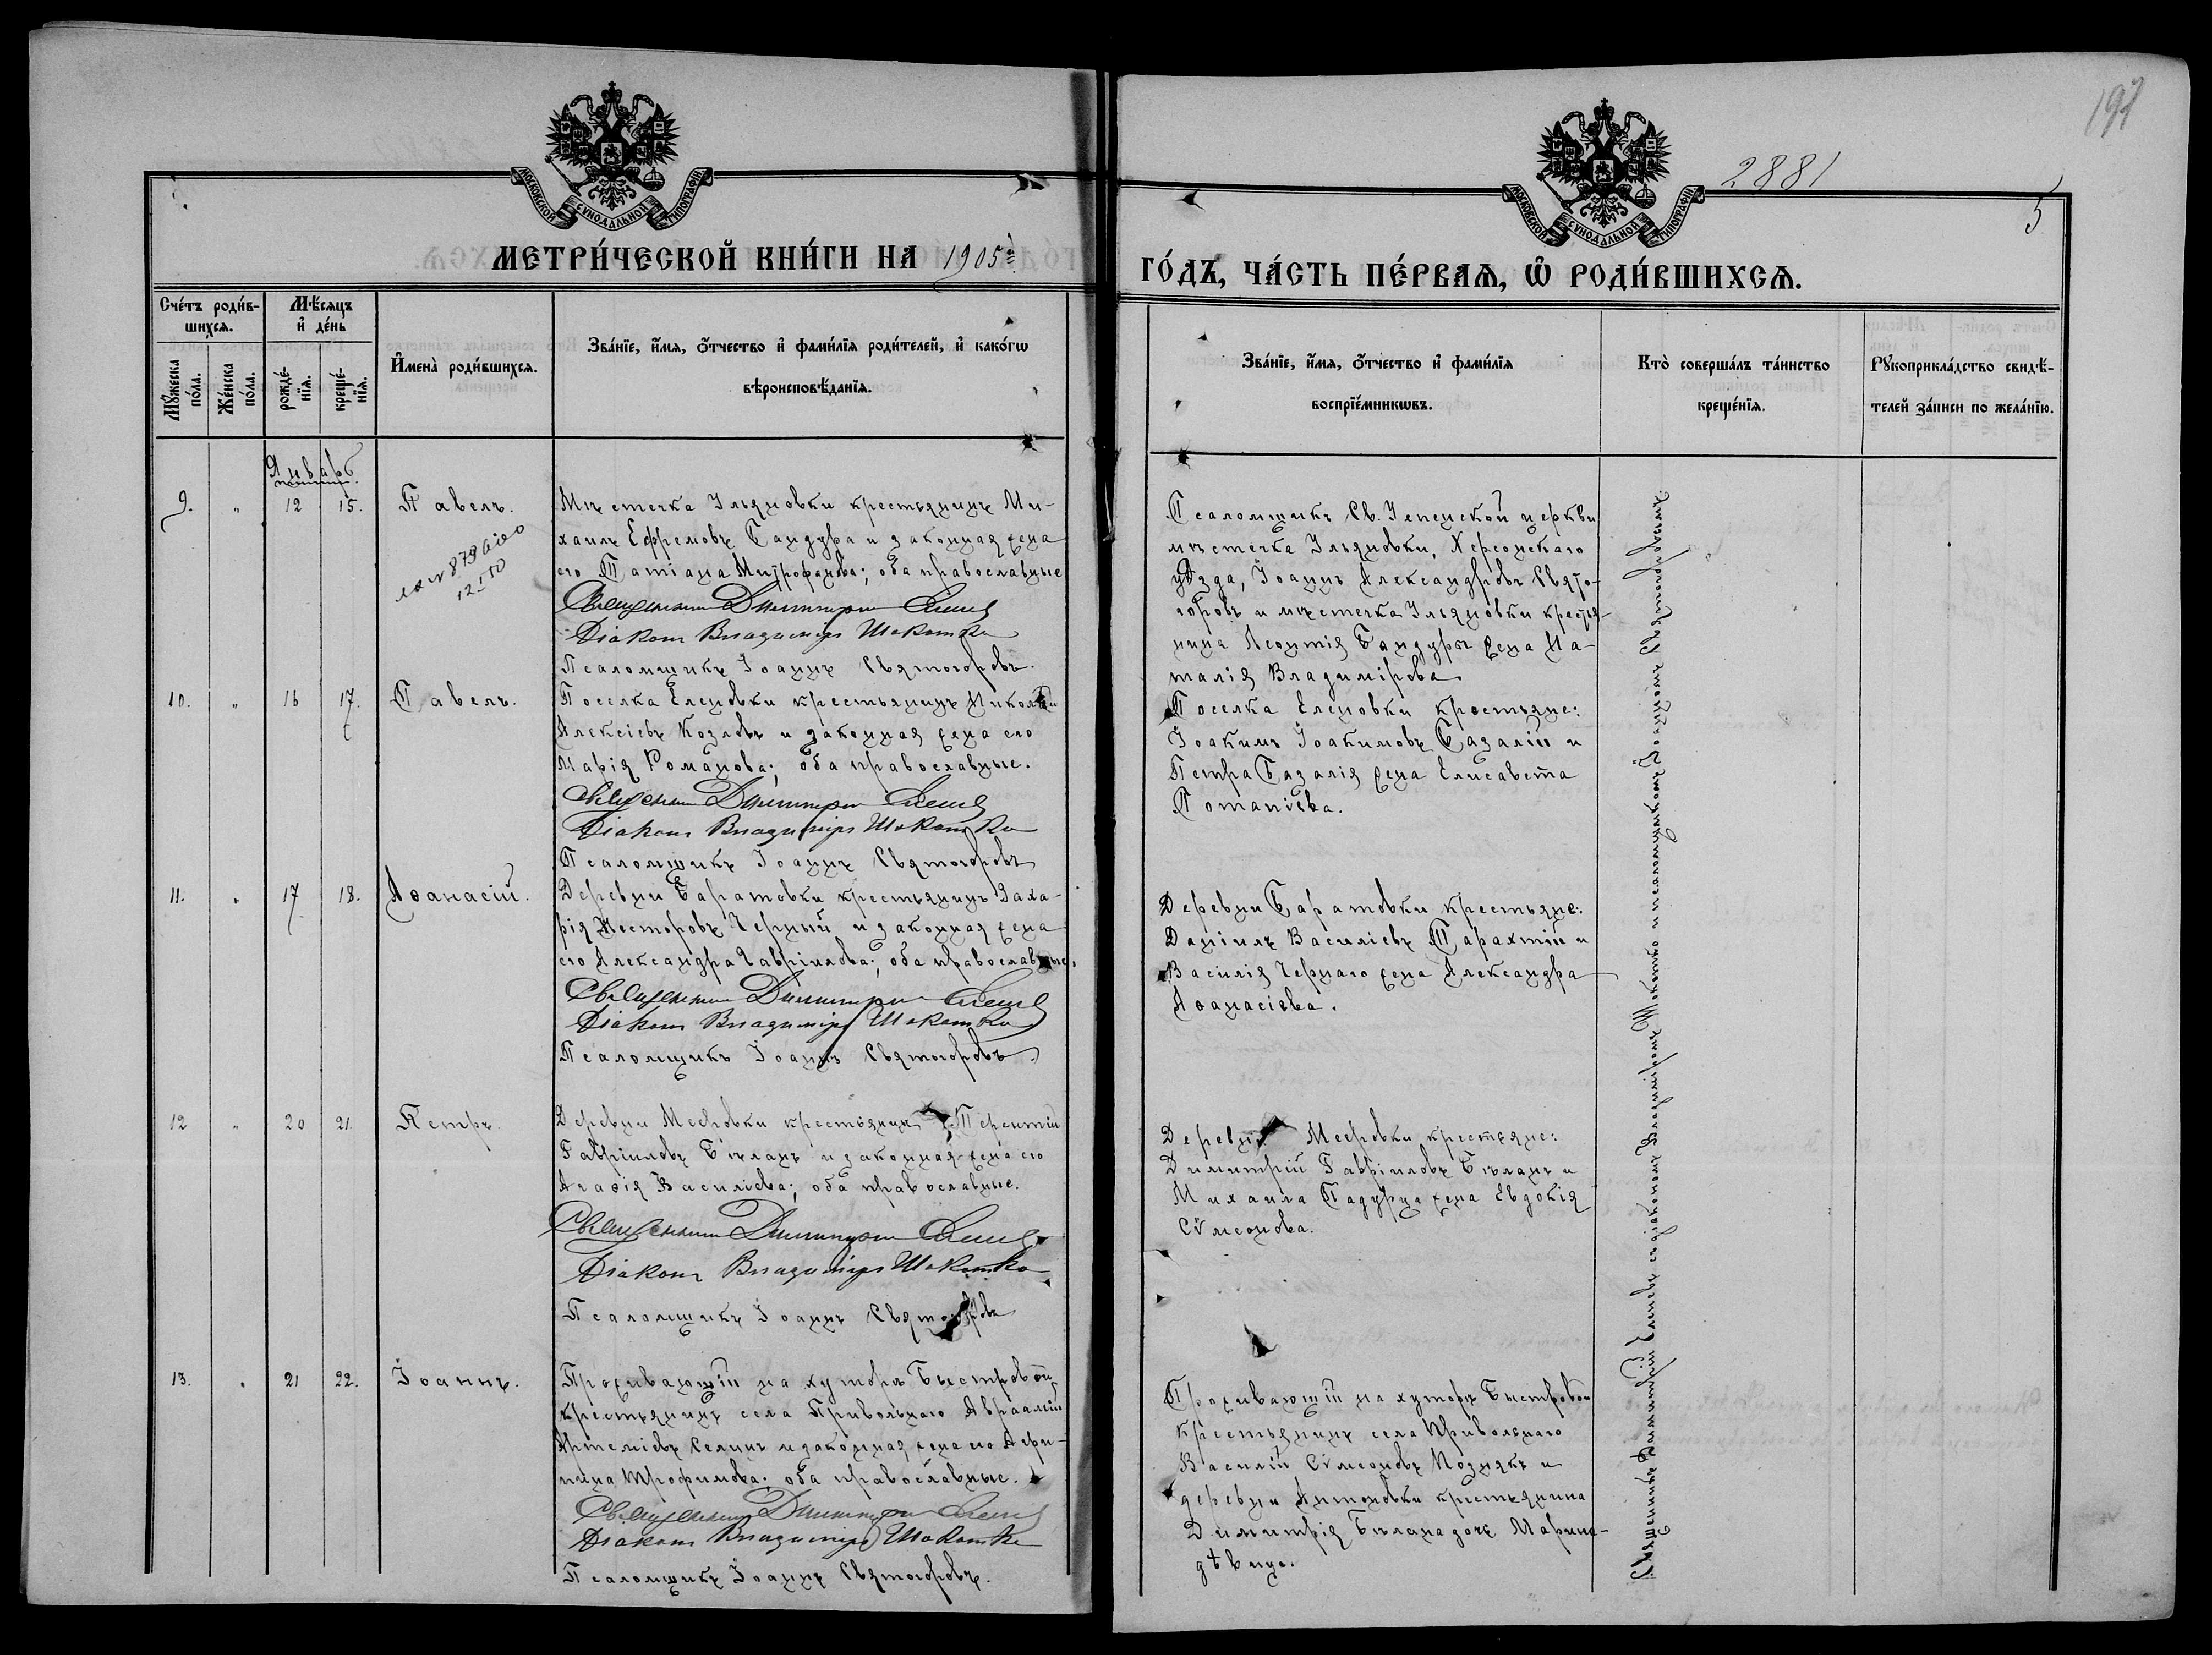 197
2881
5
МОСКОВСКОЙ СѴНОДАЛЬНОЙ ТИПОГРАФІИ
МОСКОВСКОЙ СѴНОДАЛЬНОЙ ТИПОГРАФІИ
МЕТРИ́ЧЕСКОЙ КНИ́ГИ НА 1905й
ГО́ДЪ, ЧА́СТЬ ПЕ́РВАѦ, Ѡ҆ РОДИ́ВШИХСѦ.
Сче́тъ роди́в-
шихсѧ.
Мѣ́сяцъ
и҆ де́нь
Мꙋ́жеска по́ла.
Же́нска по́ла.
рожде́-
нїѧ.
креще́-
нїѧ.
И҆мена̀ роди́вшихсѧ.
Зва́нїе, и҆́мѧ, ѻ҆́тчество и҆ фами́лїѧ роди́телей, и҆ како́гѡ
вѣроисповѣ́данїѧ.
Зва́нїе, и҆́мѧ, ѻ҆́тчество и҆ фами́лїѧ
воспрїе́мникѡвъ.
Кто̀ соверша́лъ та́инство
креще́нїѧ.
Рꙋкоприкла́дство свидѣ́-
телей за́писи по жела́нїю.
Январь
9. " 12 15. Павелъ.
Мѣстечка Ильяновки крестьянинъ Ми-
хаилъ Ефремовъ Бандура и законная жена
его Татіана Митрофанова; оба православные
Священникъ Димитрій
Діаконъ Владиміръ Шокотко
Псаломщикъ Іоаннъ Святогоровъ.
Псаломщикъ Св. Успенской церкви
мѣстечка Ильяновки, Херсонскаго
уѣзда, Іоаннъ Александровъ Свято-
горовъ и мѣстечка Ильяновки крестья-
нина Леонтія Бандуры жена На-
талія Владимірова
10. " 16 17. Павелъ.
Поселка Еленовки крестьянинъ Николай
Алексіевъ Козловъ и законная жена его
Марія Романова; оба православные.
Священникъ Димитрій
Діаконъ Владиміръ Шокотко
Псаломщикъ Іоаннъ Святогоровъ
Поселка Еленовки крестьяне:
Іоакимъ Іоакимовъ Базалій и
Петра Базалія жена Елисавета
Потапіева.
11. " 17 18. Аѳанасій.
Деревни Баратовки крестьянинъ Заха-
рія Несторовъ Черный и законная жена
его Александра Гавріилова; оба православные.
Священникъ Димитрій
Діаконъ Владиміръ Шокотко
Псаломщикъ Іоаннъ Святогоровъ.
Деревни Баратовки крестьяне:
Даніилъ Василіевъ Тарахтій и
Василія Чернаго жена Александра
Аѳанасіева.
12 " 20 21. Петръ.
Деревни Мееровки крестьянинъ Терентій
Гавріиловъ Бѣланъ и законная жена его
Агаѳія Василіева; оба православные.
Священникъ Димитрій
Діаконъ Владиміръ Шокотко
Псаломщикъ Іоаннъ Святогоровъ
Деревни Мееровки крестьяне:
Димитрій Гавріиловъ Бѣланъ и
Михаила Падурца жена Евдокія
Сѵмеонова.
13. " 21 22. Іоаннъ.
Проживающій на хуторѣ Быстровой
крестьянинъ села Привольнаго Авраамій
Артеміевъ Селинъ и законная жена его Агри-
пина Трофимова; оба православные.
Священникъ Димитрій
Діаконъ Владиміръ Шокотко
Псаломщикъ Іоаннъ Святогоровъ.
Проживающій на хуторѣ Быстровой
крестьянинъ села Привольнаго
Василій Сѵмеоновъ Познякъ и
деревни Антоновки крестьянина
Димитрія Бѣлана дочь Марина-
дѣвица.
Священникъ Димитрій съ діакономъ Владиміромъ Шокотко и псаломщикомъ Іоанномъ Святогоровымъ.